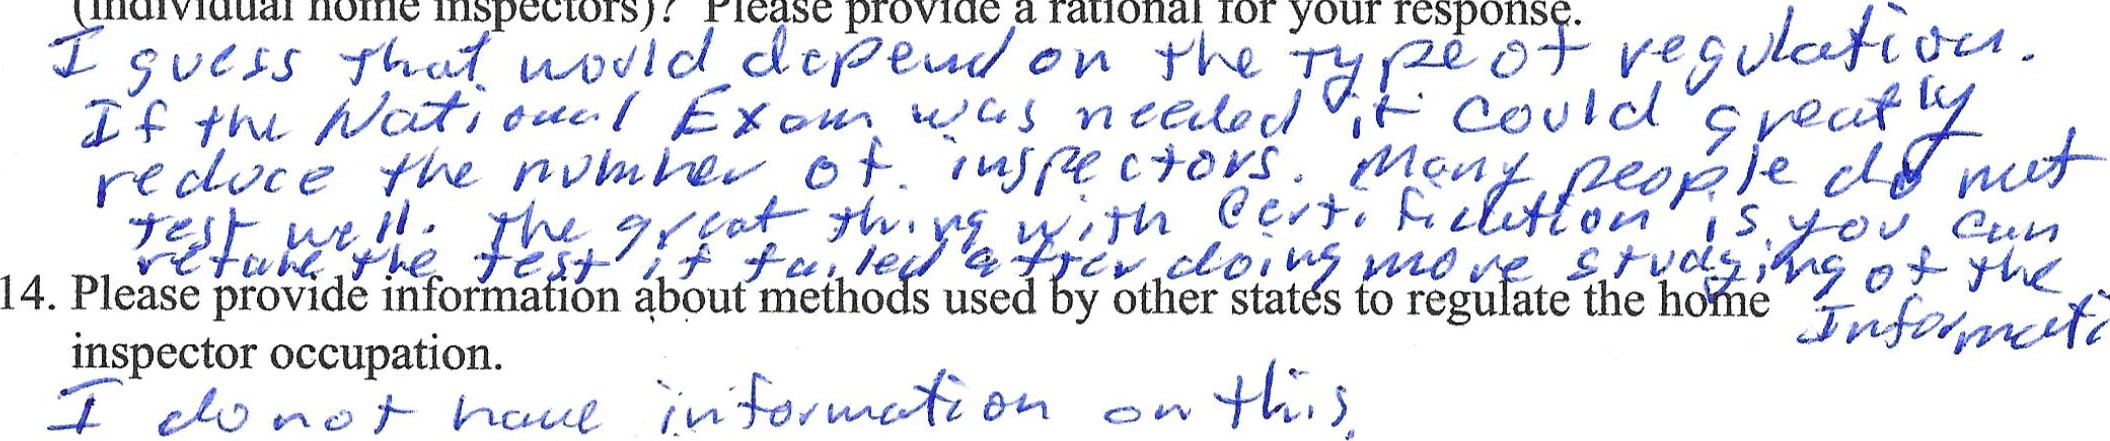 (individual home inspectors)? Please provide a rational for your response.
I guess that would depend on the type of regulation.
If the National Exam was needed it could greatly
reduce the number of inspectors. Many people do not
test well. The great thing with Certification is you can
retake the test if failed after doing more studying of the
Informati
14. Please provide information about methods used by other states to regulate the home
inspector occupation.
I do not have information on this.